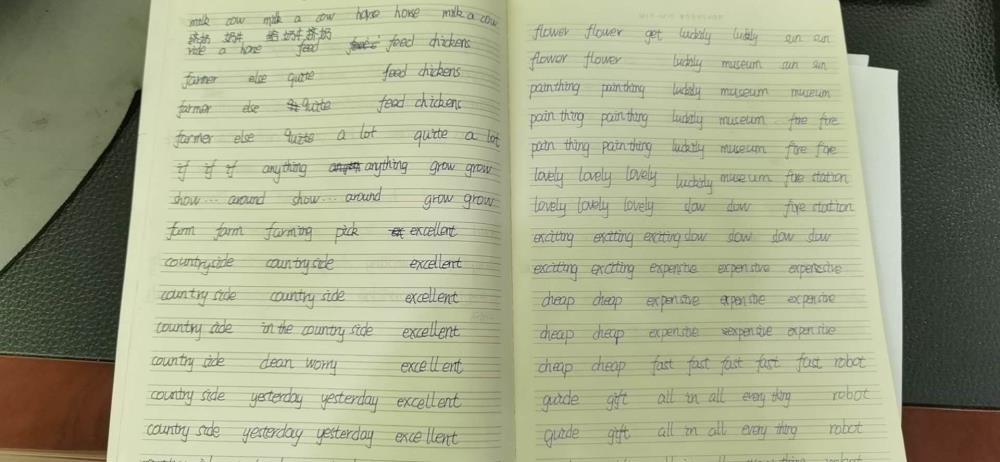 milk cow milk a cow horse horse milk a cow
挤奶 奶牛 奶 奶牛 挤奶
ride a horse feed feed chickens
farmer else quite feed chickens
farmer else quite feed chickens
farmer else quite a lot quite a lot
if if if anything anything grow grow
show... around show... around grow grow
farm farm farming pick excellent
countryside countryside excellent
country side country side excellent
country side in the country side excellent
country side clean worry excellent
country side yesterday yesterday excellent
country side yesterday yesterday excellent
flower flower get luckily luckily sun sun
flower flower luckily museum sun sun
painthing painthing luckily museum museum
pain thing painthing luckily museum fire fire
pain thing painthing luckily museum fire fire
lovely lovely lovely luckily museum fire station
lovely lovely lovely slow slow fire station
exciting exciting exciting slow slow slow slow
exciting exciting expensive expensive expensive
cheap cheap expensive expensive expensive
cheap cheap expensive expensive expensive
cheap cheap fast fast fast fast fast robot
guide gift all in all every thing robot
guide gift all in all every thing robot